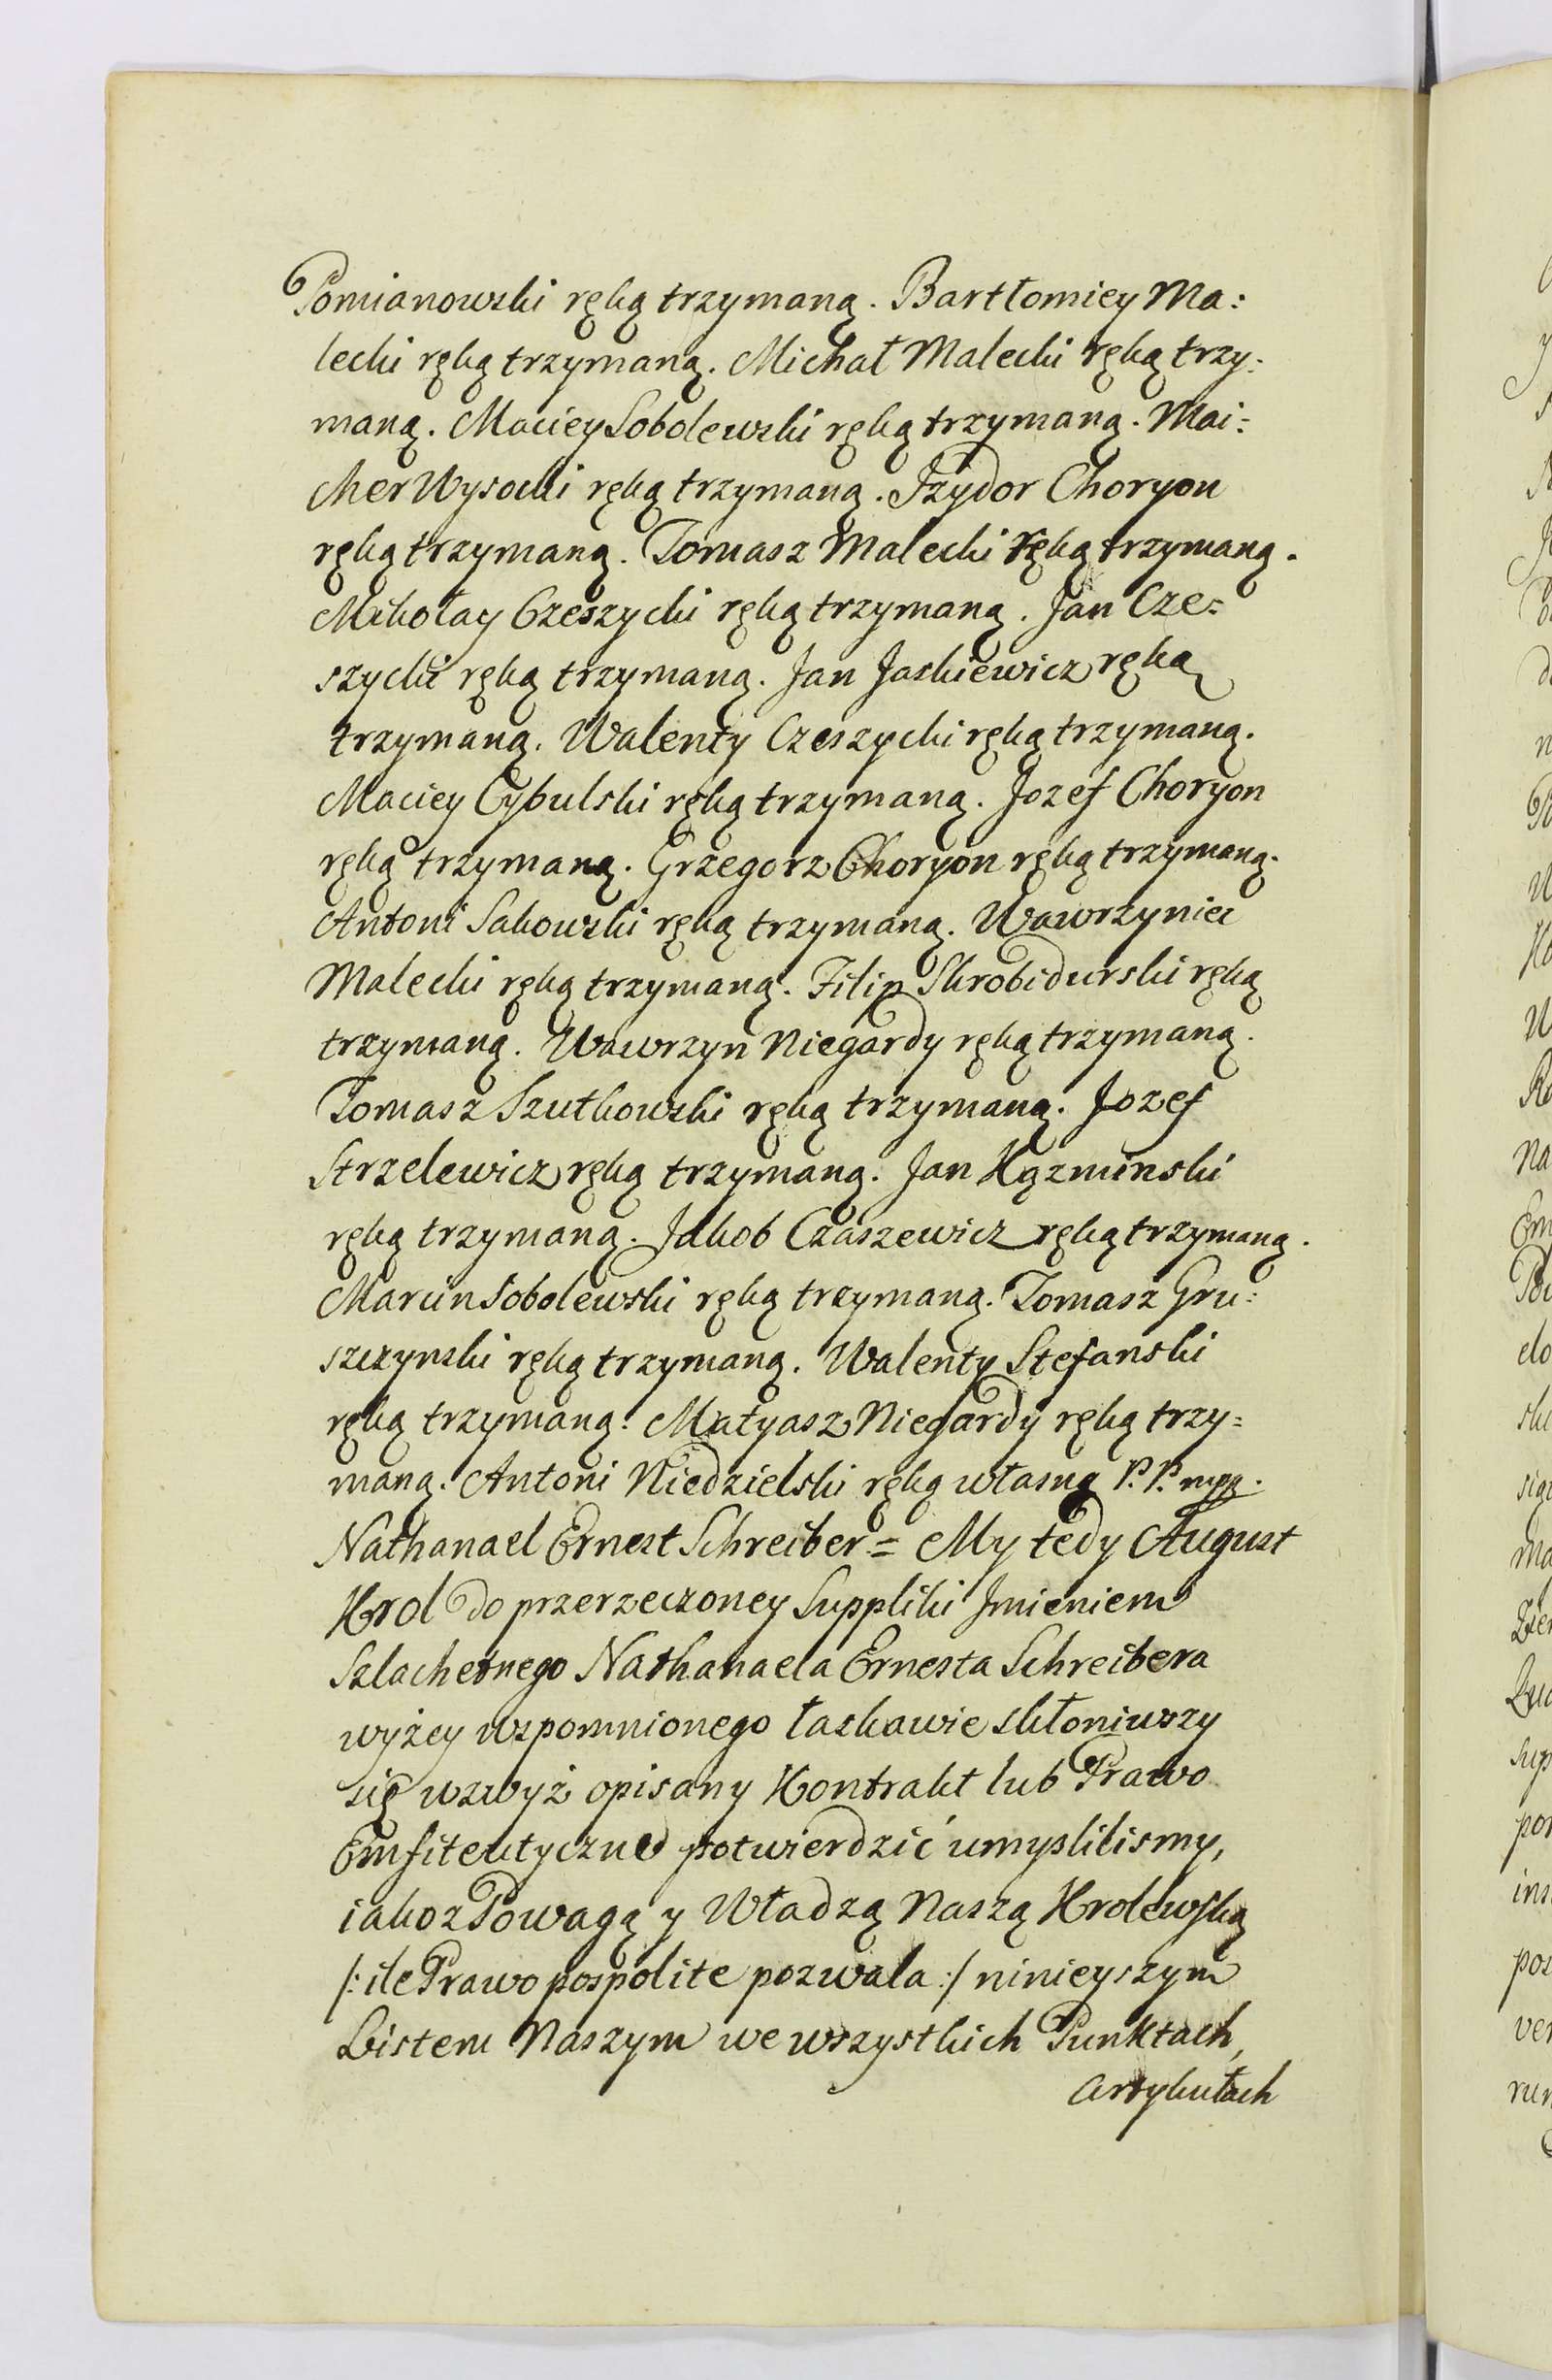 Pomianowski ręką trzymaną. Bartłomiey Ma:
lecki ręką trzymaną. Michał Malecki ręką trzy:
maną. Maciey Sobolewski ręką trzymaną. Mai:
cher Wysocki ręką trzymaną. Izydor Choryon
ręką trzymaną. Tomasz Malecki ręką trzymaną.
Mikołay Czeszycki ręką trzymaną. Jan Cze=
szycki ręką trzymaną. Jan Jaskiewicz ręką
trzymaną. Walenty Czeszycki ręką trzymaną.
Maciey Cybulski ręką trzymaną. Jozef Choryon
ręką trzymaną. Grzegorz Choryon ręką trzymaną.
Antoni Sakowski ręką trzymaną. Wawrzyniec
Malecki ręką trzymaną. Filip Skrobidurski ręką
trzymaną. Wawrzyn Niegardy ręką trzymaną.
Tomasz Szutkowski ręką trzymaną. Jozef
Strzelewicz ręką trzymaną. Jan Kązminski
ręką trzymaną. Jakob Czaszewicz ręką trzymaną.
Marcin Sobolewski ręką trzymaną. Tomasz Gru:
szczynski ręką trzymaną. Walenty Stefanski
ręką trzymaną. Matyasz Niegardy ręką trzy=
maną. Antoni Niedzielski ręką własną P. P. mpp.
Nathanael Ernest Schreiber = My tedy August
Krol do przerzeczoney Suppliki Jmieniem
Szlachetnego Nathanaela Ernesta Schreibera
wyżey wspomnionego łaskawie skłoniwszy
się wzwyż opisany Kontrakt lub Prawo
Emfiteutyczne potwierdzić umyslilismy,
iakoz Powagą y Władzą Naszą Krolewską
/: ile Prawo pospolite pozwala :/ ninieyszym
Listem Naszym we wszystkich Punktach,
artykułach